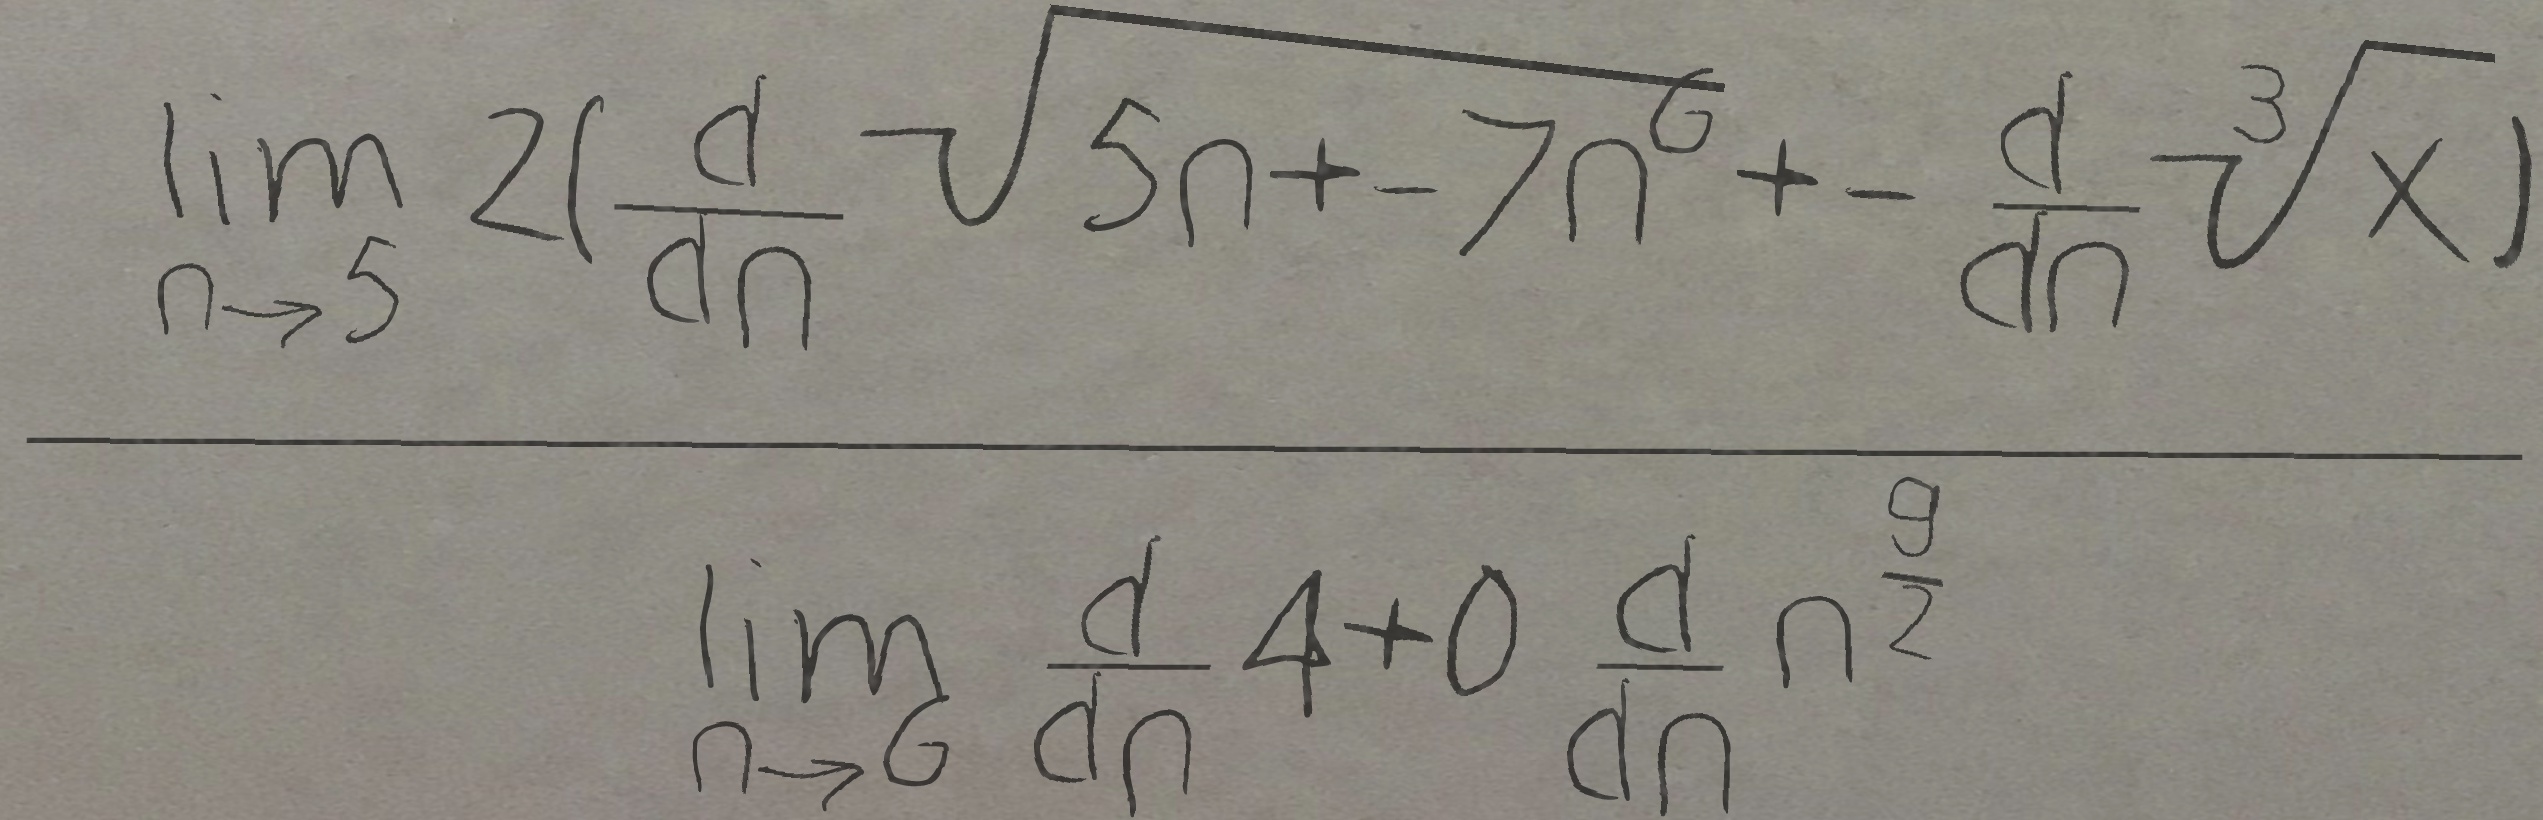 \frac{\lim_{n \to 5} 2(\frac{d}{dn} \sqrt{5n + -7n^6} + -\frac{d}{dn} \sqrt[3]{x})}{\lim_{n \to 6} \frac{d}{dn} 4 + 0 \frac{d}{dn} n^{\frac{9}{2}}}